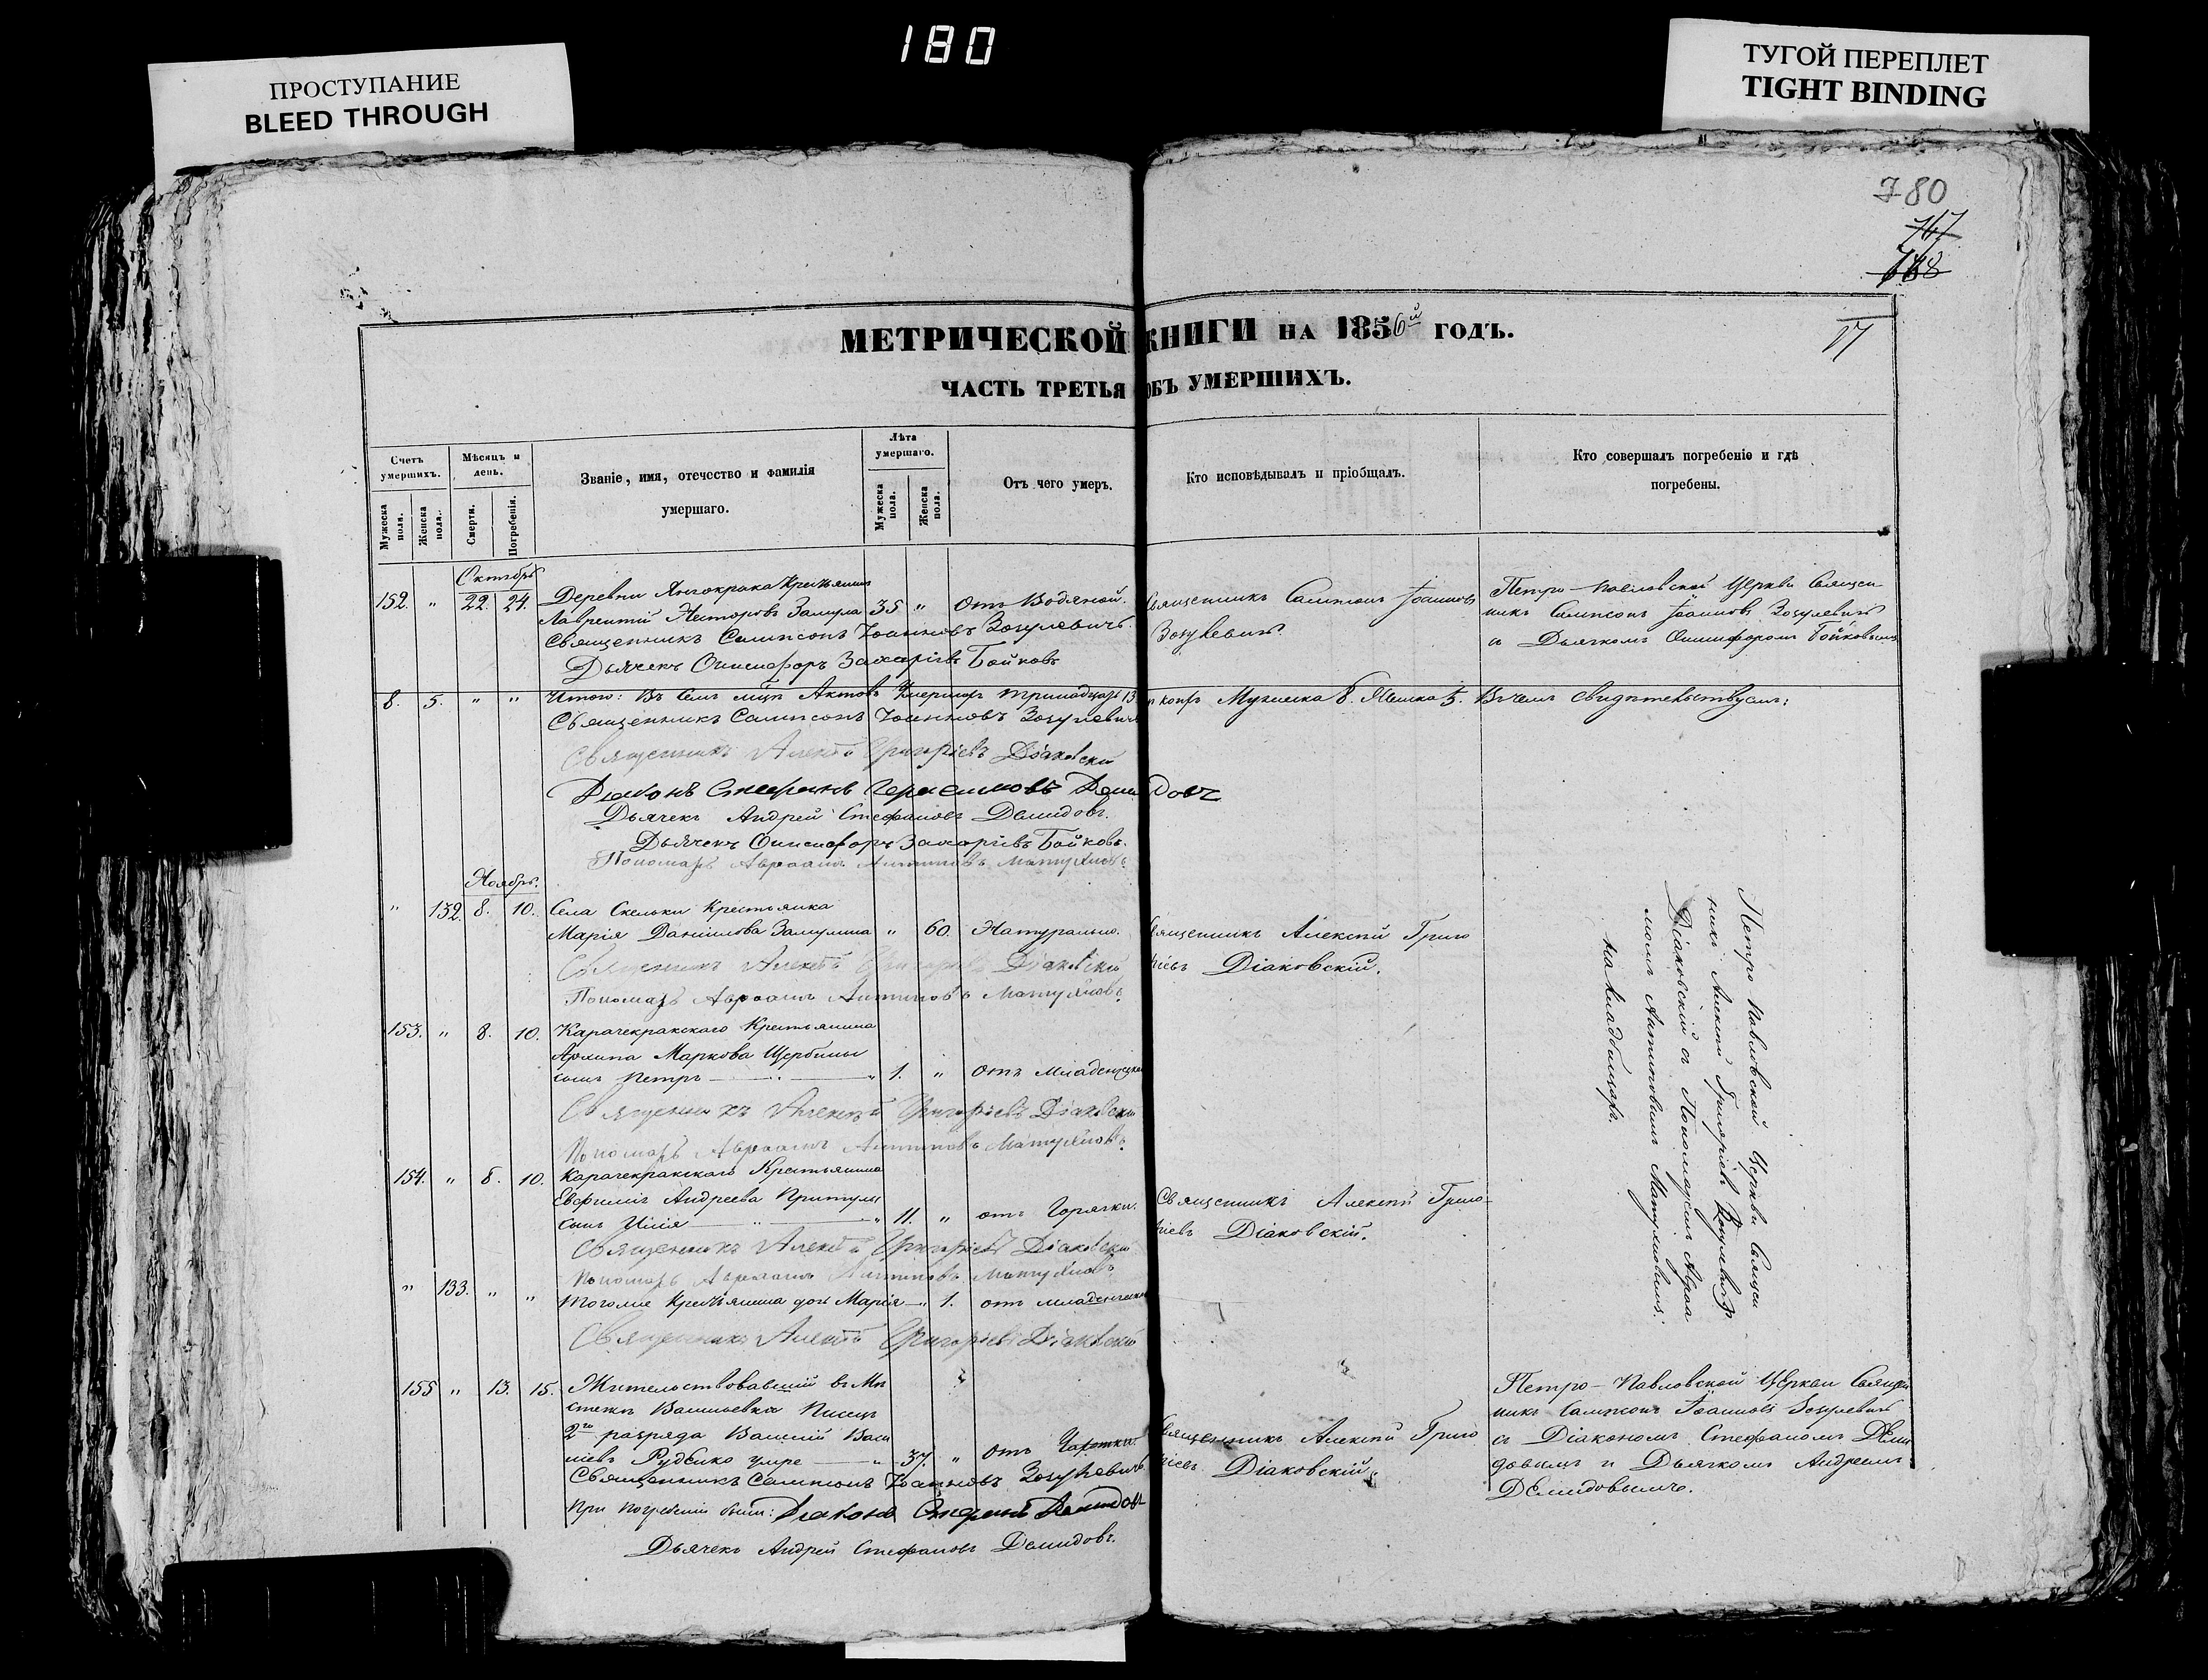 180
ПРОСТУПАНИЕ
BLEED THROUGH
ТУГОЙ ПЕРЕПЛЕТ
TIGHT BINDING
780
767
768
17
МЕТРИЧЕСКОЙ КНИГИ НА 1856й ГОДЪ.
ЧАСТЬ ТРЕТЬЯ ОБЪ УМЕРШИХЪ.
Счетъ умершихъ.
Мужеска пола.
Женска пола.
Мѣсяцъ и день.
Смерти.
Погребенія.
Званіе, имя, отечество и фамилія
умершаго.
Лѣта умершаго.
Мужеска пола.
Женска пола.
Отъ чего умеръ.
Кто исповѣдывалъ и пріобщалъ.
Кто совершалъ погребеніе и гдѣ
погребены.
Октябрь
152. " 22. 24. Деревни Янчокрака Крестьянинъ
Лаврентій Несторовъ Замула 35 " Отъ Водяной.
Священникъ Сампсонъ Іоанновъ Зозулевичъ.
Дьячекъ Онисифоръ Захаріевъ Бойковъ
Священникъ Сампсонъ Іоанновъ
Зозулевичъ.
Петро-Павловской Церкви Священ
никъ Сампсонъ Іоанновъ Зозулевичъ
съ Дьячкомъ Онисифоромъ Бойковымъ
8. 5. " " Итого: Въ семъ мцѣ Актовъ Умершихъ тринадцать 13 Мужеска 8. Женска 5. Въ чемъ свидѣтельствуемъ:
Священникъ Сампсонъ Іоанновъ Зозулевичъ
Священникъ Алексѣй Григоріевъ Діаковскій
Діаконъ Стефанъ Герасимовъ Демидовъ
Дьячекъ Андрей Стефановъ Демидовъ.
Дьячекъ Онисифоръ Захаріевъ Бойковъ.
Пономарь Авраамъ Антиповъ
Ноябрь.
" 132. 8. 10. Села Скельки Крестьянка
Марія Даніилова Замулина " 60. Натурально.
Священникъ Алексѣй Григоріевъ Діаковскій
Пономарь Авраамъ Антиповъ
Священникъ Алексѣй Григо
ріевъ Діаковскій.
153. " 8. 10. Карачекракскаго Крестьянина
Архипа Маркова Щербины
сынъ Петръ 1. " Отъ Младенческой
Священникъ Алексѣй Григоріевъ Діаковскій
Пономарь Авраамъ Антиповъ
154. " 8. 10. Карачекракскаго Крестьянина
Евфимія Андреева Притулы
сынъ Илія 11. " отъ Горячки.
Священникъ Алексѣй Григоріевъ Діаковскій
Пономарь Авраамъ Антиповъ
Священникъ Алексѣй Григо-
ріевъ Діаковскій.
" 133. " " Тогоже Крестьянина дочь Марія " 1. отъ младенческой
Священникъ Алексѣй Григоріевъ Діаковскій
Петро Павловской Церкви Священ
никъ Алексѣй Григоріевъ
Діаковскій съ Пономаремъ Авраа
момъ Антиповымъ
на кладбищѣ.
155 " 13. 15. Жительствовавшій въ Мѣ
стечкѣ Васильевкѣ Писецъ
2го разряда Василій Васи
ліевъ Руденко умре 37. " отъ
Священникъ Сампсонъ Іоанновъ Зозулевичъ
При погребеніи были: Діаконъ Стефанъ Демидовъ
Дьячекъ Андрей Стефановъ Демидовъ.
Священникъ Алексѣй Григо
ріевъ Діаковскій.
Петро-Павловской Церкви Священ
никъ Сампсонъ Іоанновъ Зозулевичъ
съ Діакономъ Стефаномъ Деми
довымъ и Дьячкомъ Андреемъ
Демидовымъ.